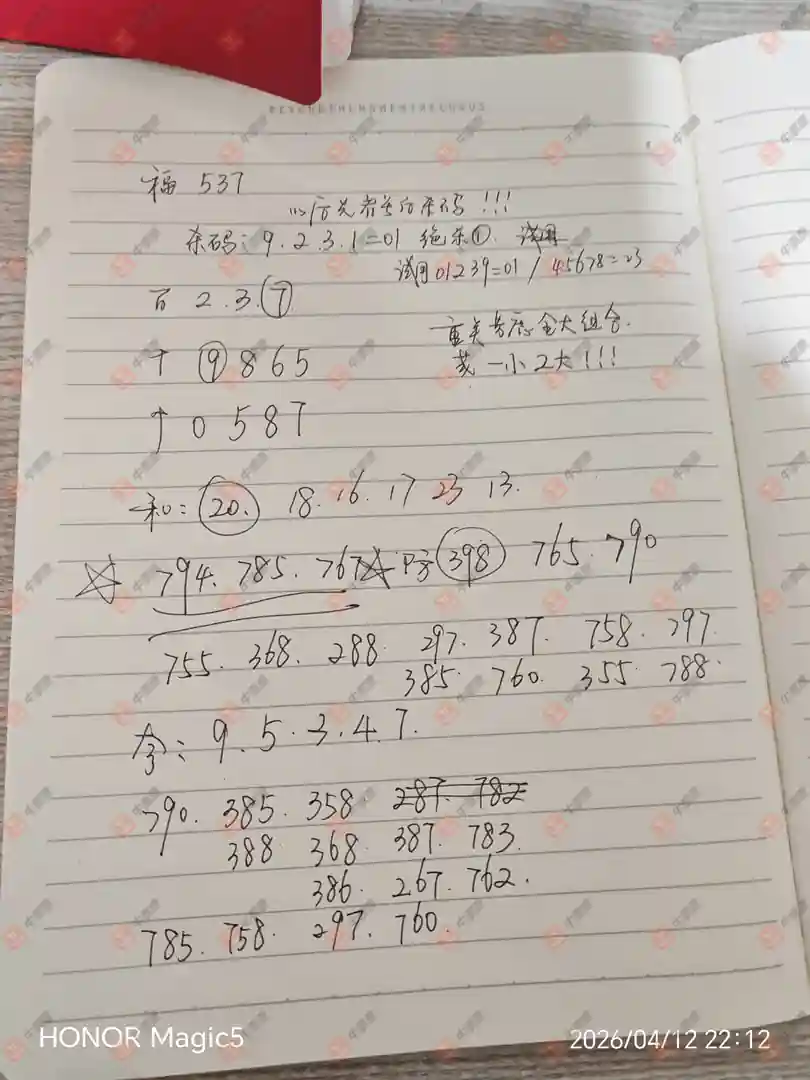 福 537
以后先看关的杀码!!!
杀码: 9.2.3.1=01 绝杀① 试用
试用01239=01 / 45678=23
百 2.3.⑦
重关考虑全大组合.
或一小2大!!!
十 ⑨865
个 0587
和: 20. 18. 16. 17 23 13.
794. 785. 767 防 398 765. 790
755. 368. 288. 297. 387. 758. 297.
385. 760. 355. 788.
夸: 9. 5. 3. 4. 7.
790. 385. 358 287. 782
388 368. 387. 783.
386. 267. 762.
785. 758. 297. 760.
HONOR Magic5
2026/04/12 22:12